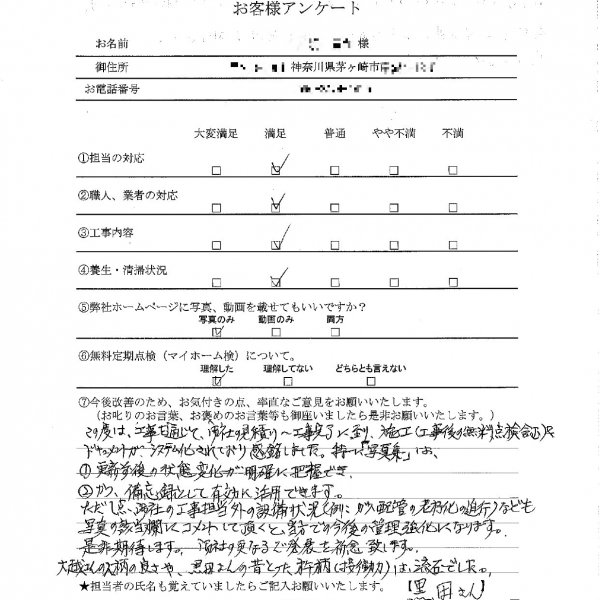 お客様アンケート
お名前 様
御住所 神奈川県茅ヶ崎市
お電話番号
大変満足 満足 普通 やや不満 不満
①担当の対応
②職人、業者の対応
③工事内容
④養生・清掃状況
⑤弊社ホームページに写真、動画を載せてもいいですか?
写真のみ 動画のみ 両方
⑥無料定期点検(マイホーム検)について。
理解した 理解してない どちらとも言えない
⑦今後改善のため、お気付きの点、率直なご意見をお願いいたします。
(お叱りのお言葉、お褒めのお言葉等も御座いましたら是非お願いします。)
この度は、工事を通じて、御社の見積り〜工事完了に到り、施工(工事後の無料点検含む)に
ドキュメントが、システム化されており感銘しました。特に「写真集」は、
①更新前後の状態変化が明確に把握でき、
②かつ、備忘録として有効に活用できます。
ただし、御社の工事担当外の設備状況(例:ガス配管の老朽化の進行)なども
写真の該当欄にコメントして頂くと、当方での今後の管理強化になります。
是非期待します。御社の更なるご発展を祈念致します。
大越さんの人柄の良さや、黒田さんの昔とった杵柄()は、流石でした。
★担当者の氏名も覚えていましたらご記入お願いします。 【黒田さん】